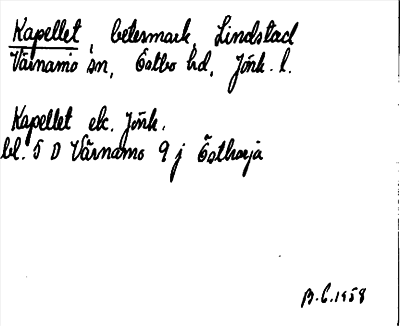 Kapellet, betesmark, Lindstad
Värnamo sn, Östbo hd, Jönk. l.
Kapellet ek. Jönk.
bl. 5 D Värnamo 9 j Östhorja
B.E. 1958